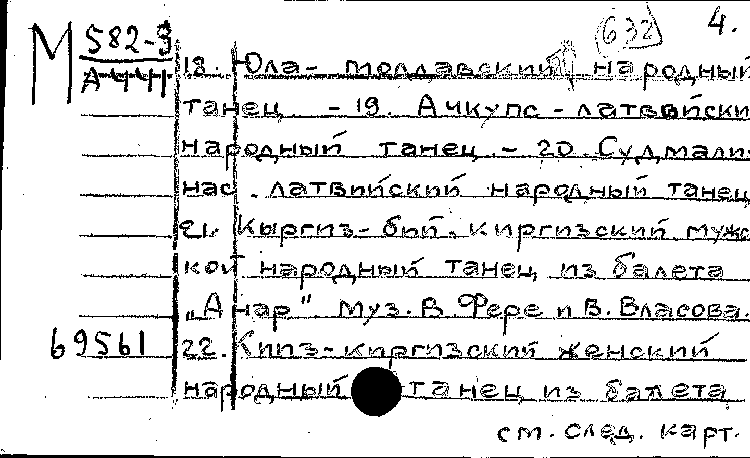 632 4.
М 582-3
А-444
18. Юла- молдавский народный
танец - 19. Ачкупс - латвийски
народный танец. - 20. Судмали-
нас. латвийский народный танец
21. Кыргиз-бий. киргизский мужс
кой народный танец из балета
„Анар". муз. В. Фере и В. Власова.
69561 22. Кииз-киргизский женский
народный танец из балета
см. след. карт.